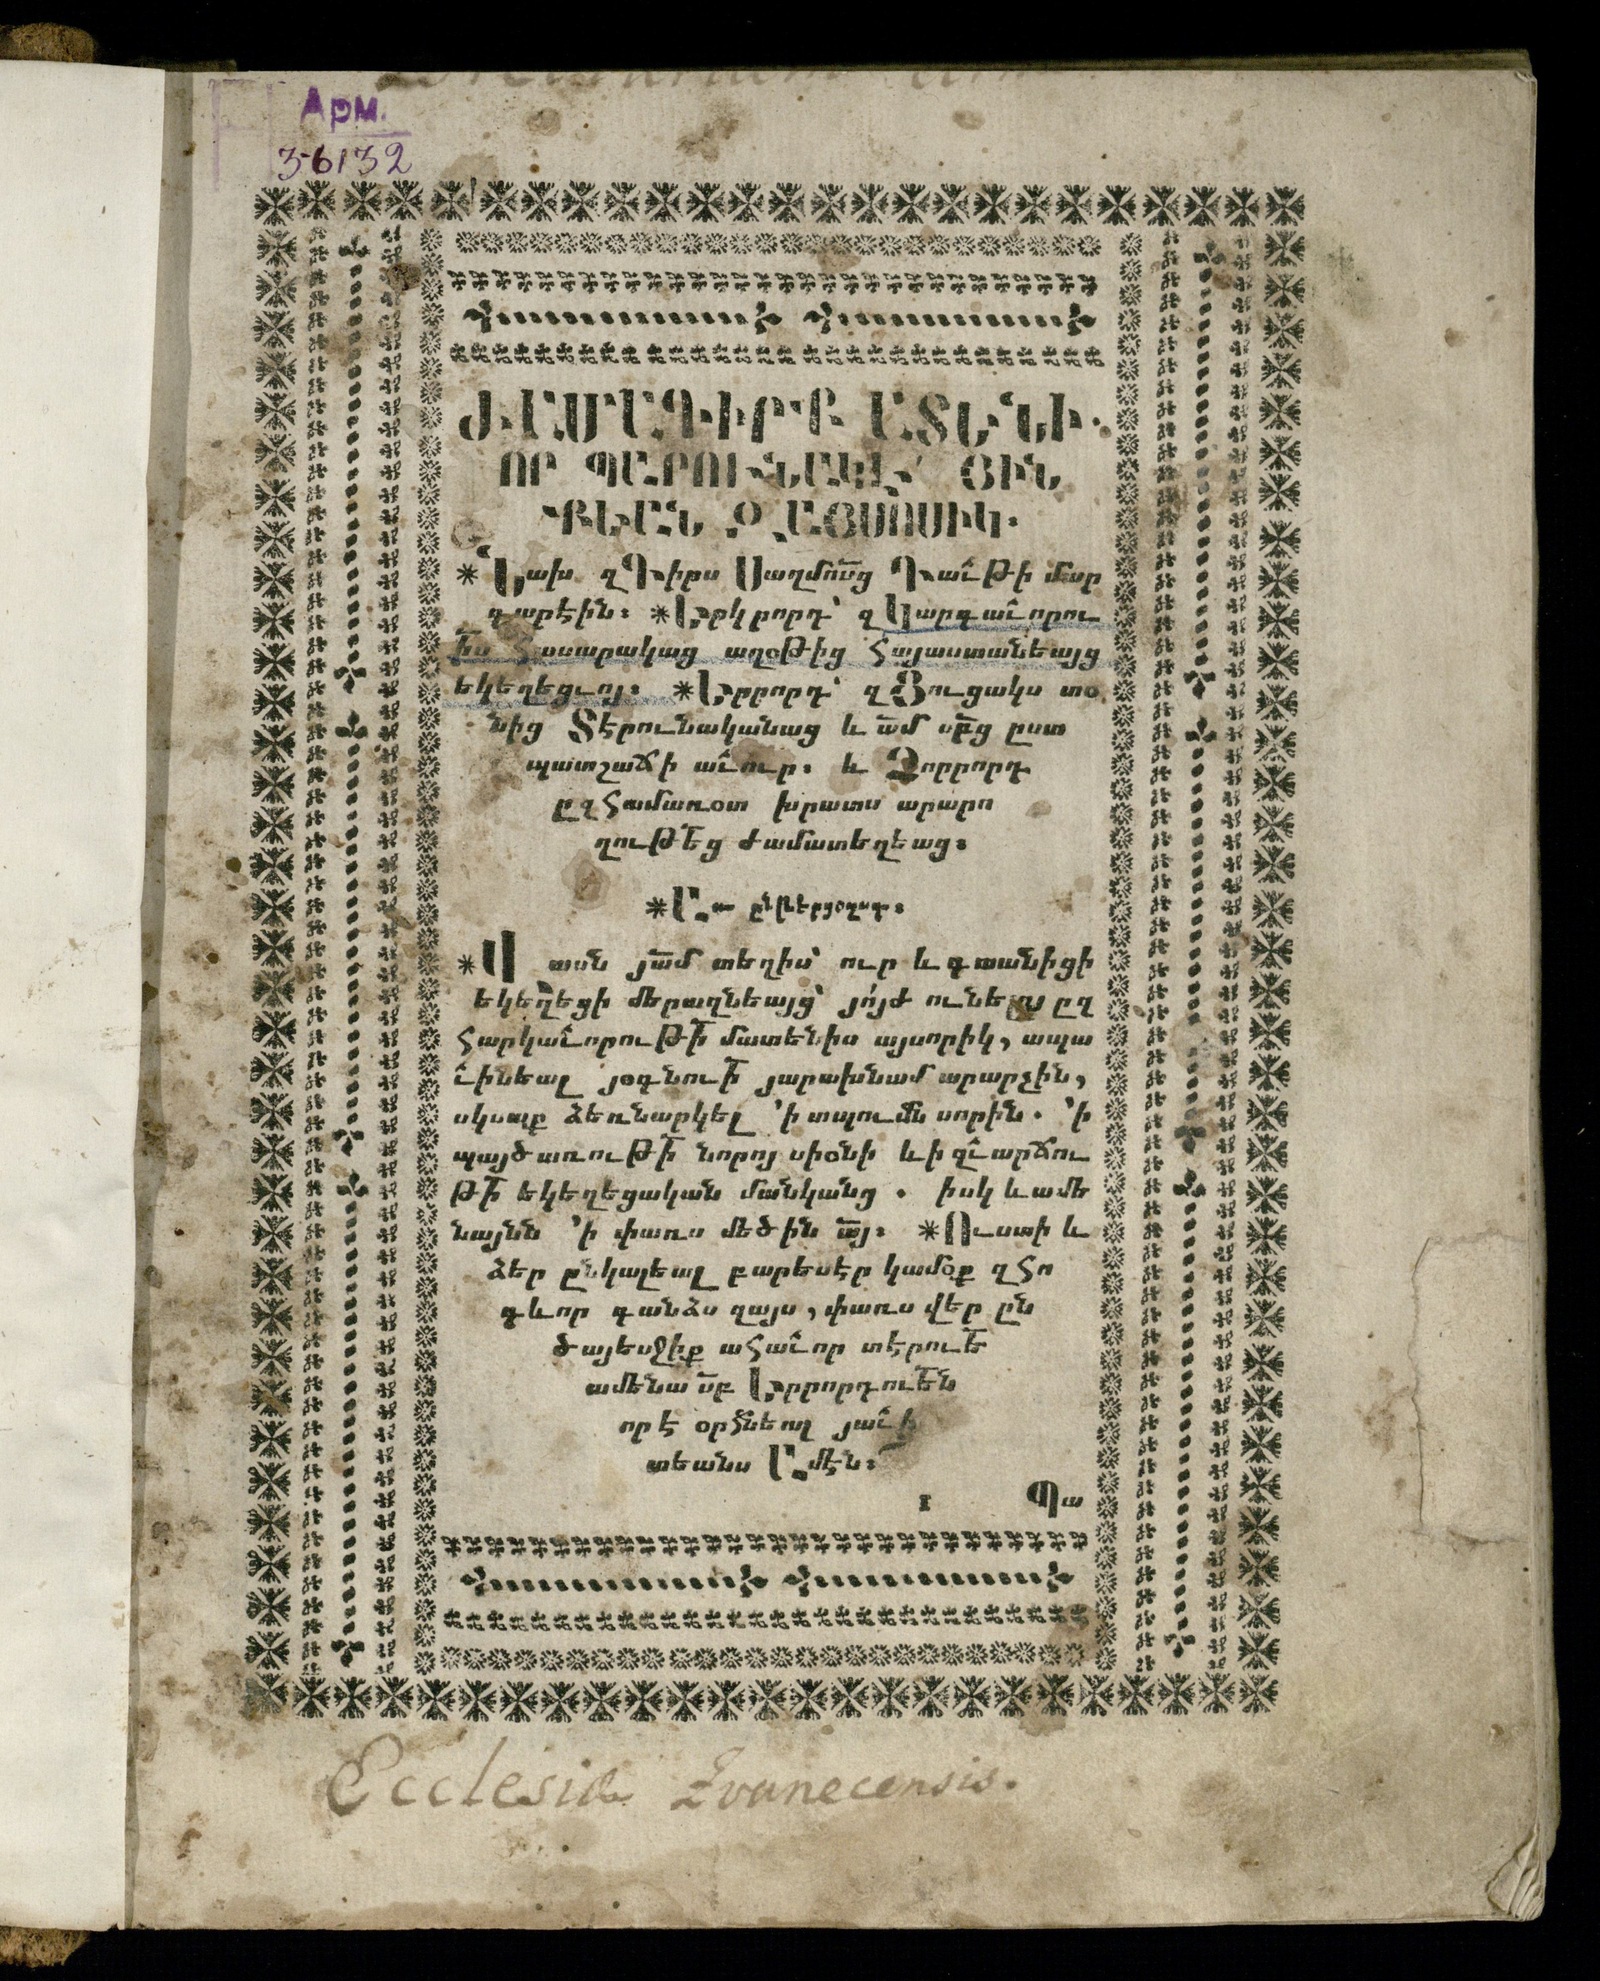 Арм.
36132
ԺԱՄԱԳԻՐՔ ԱՏԵՆԻ.
ՈՐ ՊԱՐՈՒՆԱԿԷ՛ ՅԻՆ
ՔԵԱՆ ԶԱՅՍՈՍԻԿ.
*Նախ զԳիրս Սաղմո՜սց Դաւթի մար
գարէին։ *Երկրորդ՝ զԿարգաւորու
ի՜ս հասարակաց աղօթից հայաստանեայց
եկեղեցւոյ։ *Երրորդ՝ զՑուցակս տօ
նից Տէրունականաց և ա՜մ ս՜րբց ըստ
պատշաճի աւուր։ և Չորրորդ
ըզհամառօտ խրատս արարո
ղութե՜ց ժամատեղեաց։
*Առ ընթերցօղսդ։
*Վ ասն յա՜մ տեղիս՝ ուր և գտանիցի
եկեղեցի մերազնեայց՝ յո՛յժ ունելոյ ըզ
հարկաւորութի՜ մատենիս այսորիկ, ապա
ւինեալ յօգնութի՜ յարախնամ արարչին,
սկսաք ձեռնարկել ՚ի տպումն սորին. ՚ի
պայծառութի՜ նորոյ սիօնի և ի զւարճու
թի՜ եկեղեցական մանկանց. իսկ և ամե
նայնն ՚ի փառս մեծին ա՜յ։ *Ուստի և
ձեր ընկալեալ բարեսէր կամօք զհո
գևոր գանձս զայս, փառս վեր ըն
ծայեսջիք ահաւոր տէրուե՜
ամենա ս՜բ Երրորդուե՜ն
որ է օրհնեալ յաւի
տեանս Ամէն։
1 Պա
Ecclesiæ Zvanecensis.